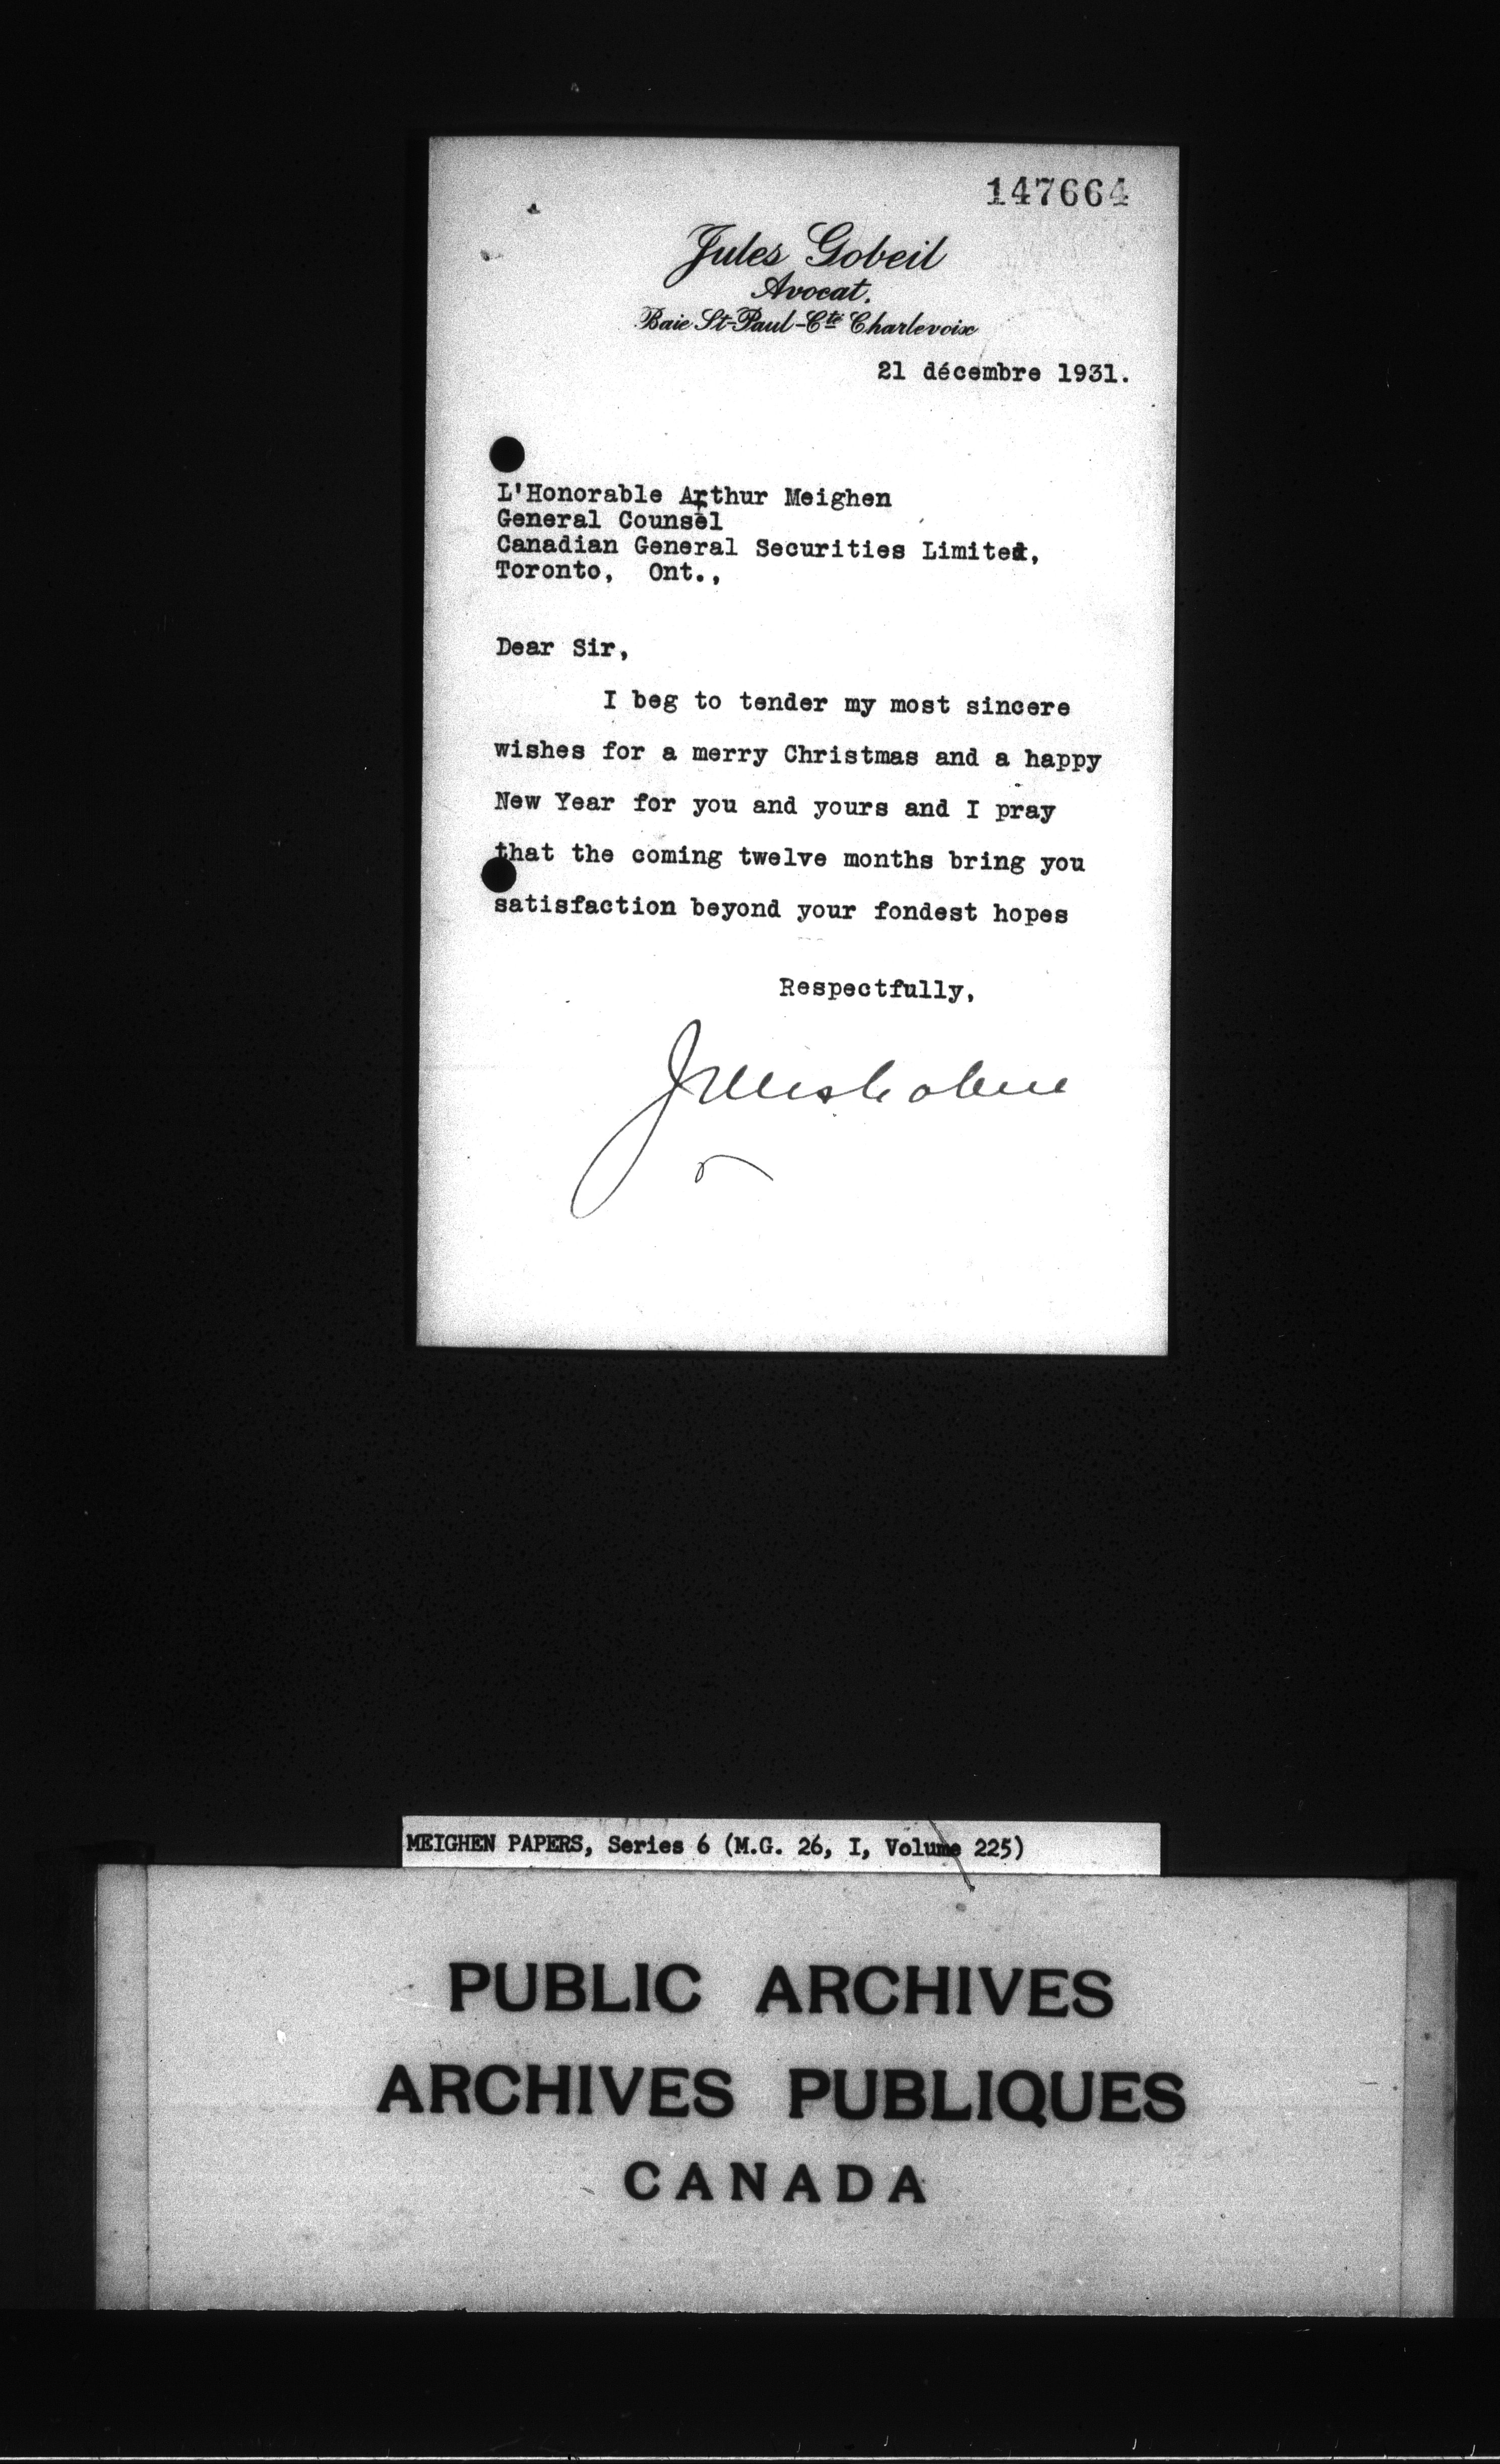 147664
Jules Gobeil
Avocat.
Baie St-Paul-Cté Charlevoix
21 décembre 1931.
L'Honorable Arthur Meighen
General Counsel
Canadian General Securities Limited,
Toronto, Ont.,
Dear Sir,
I beg to tender my most sincere
wishes for a merry Christmas and a happy
New Year for you and yours and I pray
that the coming twelve months bring you
satisfaction beyond your fondest hopes
Respectfully,
MEIGHEN PAPERS, Series 6 (M.G. 26, I, Volume 225)
PUBLIC ARCHIVES
ARCHIVES PUBLIQUES
CANADA